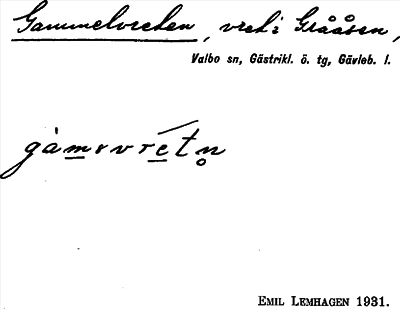 Gammelvreten, vret i Grååsen,
Valbo sn, Gästrikl. ö. tg, Gävleb. l.
gàmsvrétn̥
EMIL LEMHAGEN 1931.